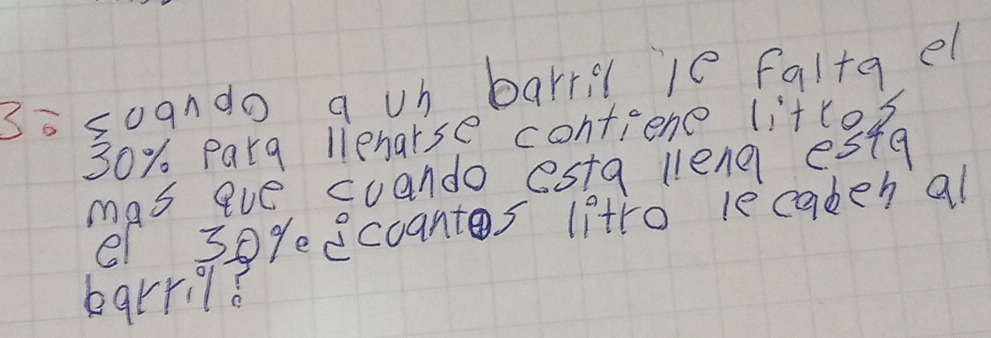 3: cuando a un barril le falta el
30% para llenarse contiene litros
mas que cuando esta llena esta
el 30% ¿cuantos litro le caben al
barril?